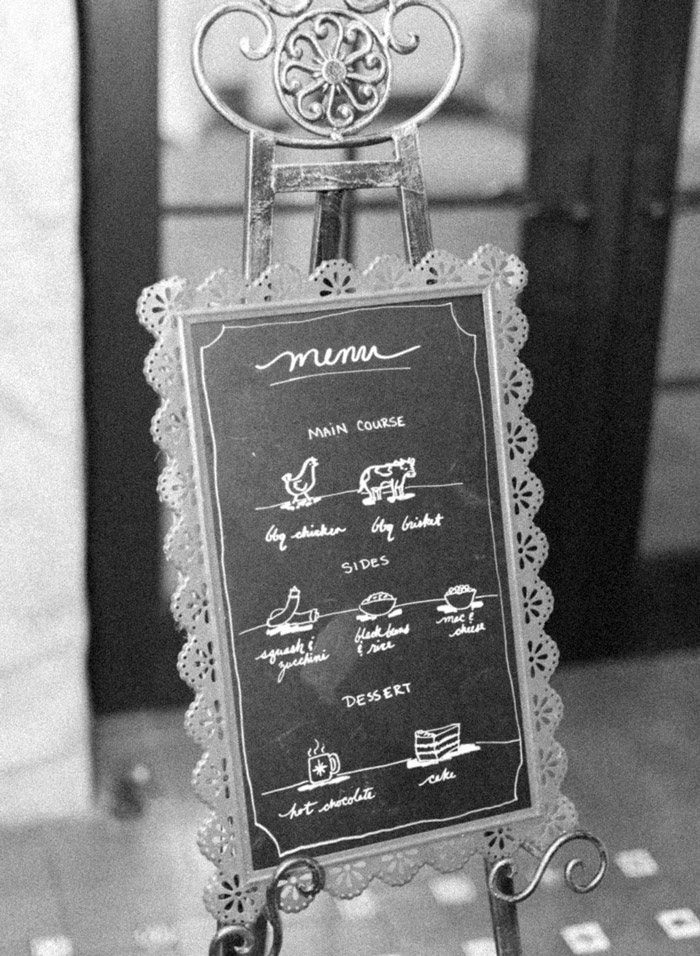 menu
MAIN COURSE
bbq chicken bbq brisket
SIDES
squash & black beans mac &
zucchini & rice cheese
DESSERT
hot chocolate cake